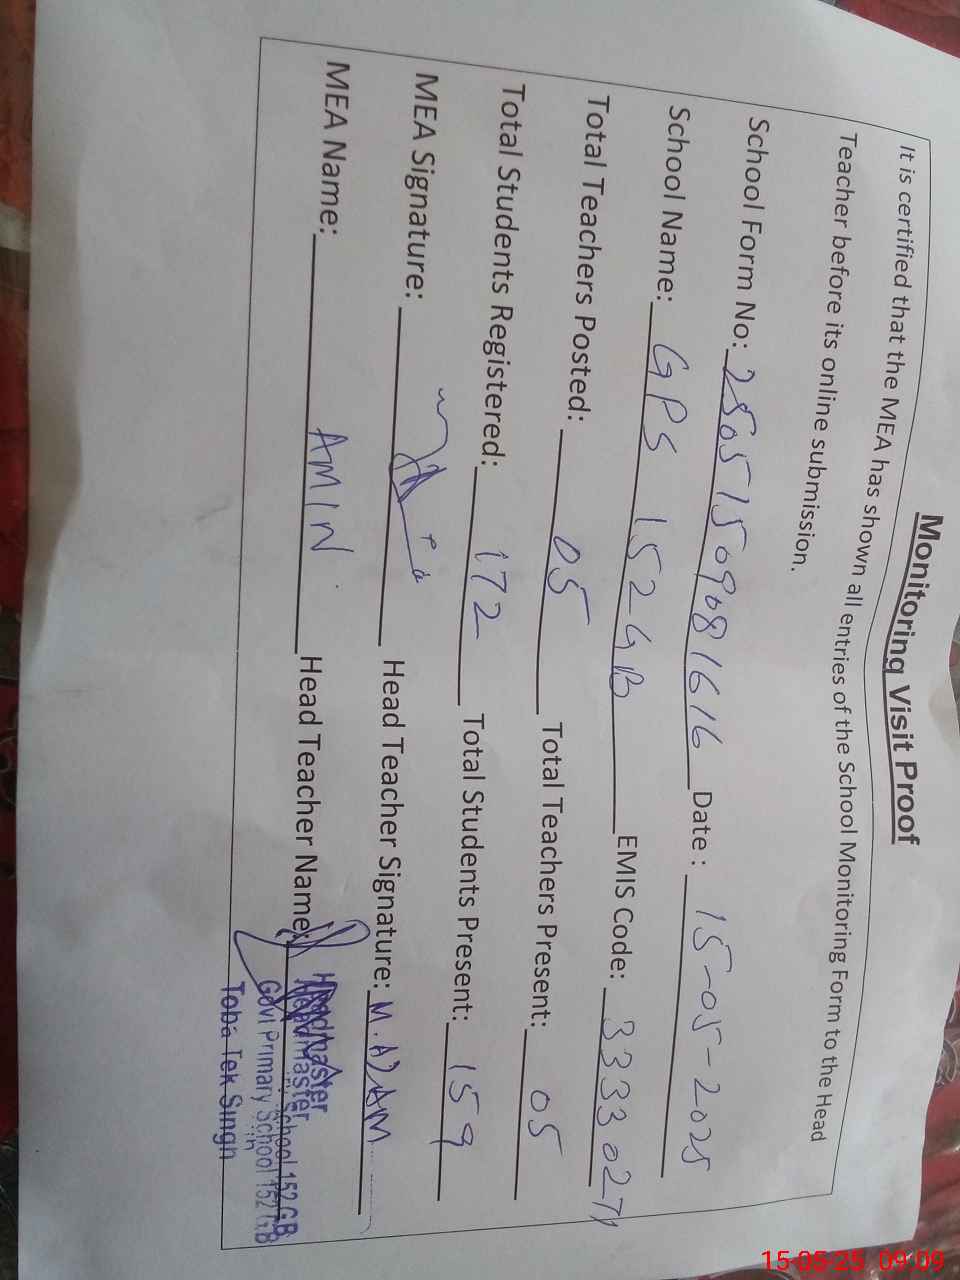 Monitoring Visit Proof
It is certified that the MEA has shown all entries of the School Monitoring Form to the Head
Teacher before its online submission.
School Form No: 25051509081616 Date : 15-05-2025
School Name: GPS 152 GB EMIS Code:
Total Teachers Posted: 05 Total Teachers Present: 05
Total Students Registered: 172 Total Students Present: 159
MEA Signature: Head Teacher Signature: M. AZAM
MEA Name: AMIN Head Teacher Name:
Headmaster
Govt Primary School 152 GB
Toba Tek Singh
15-05-25 09:09